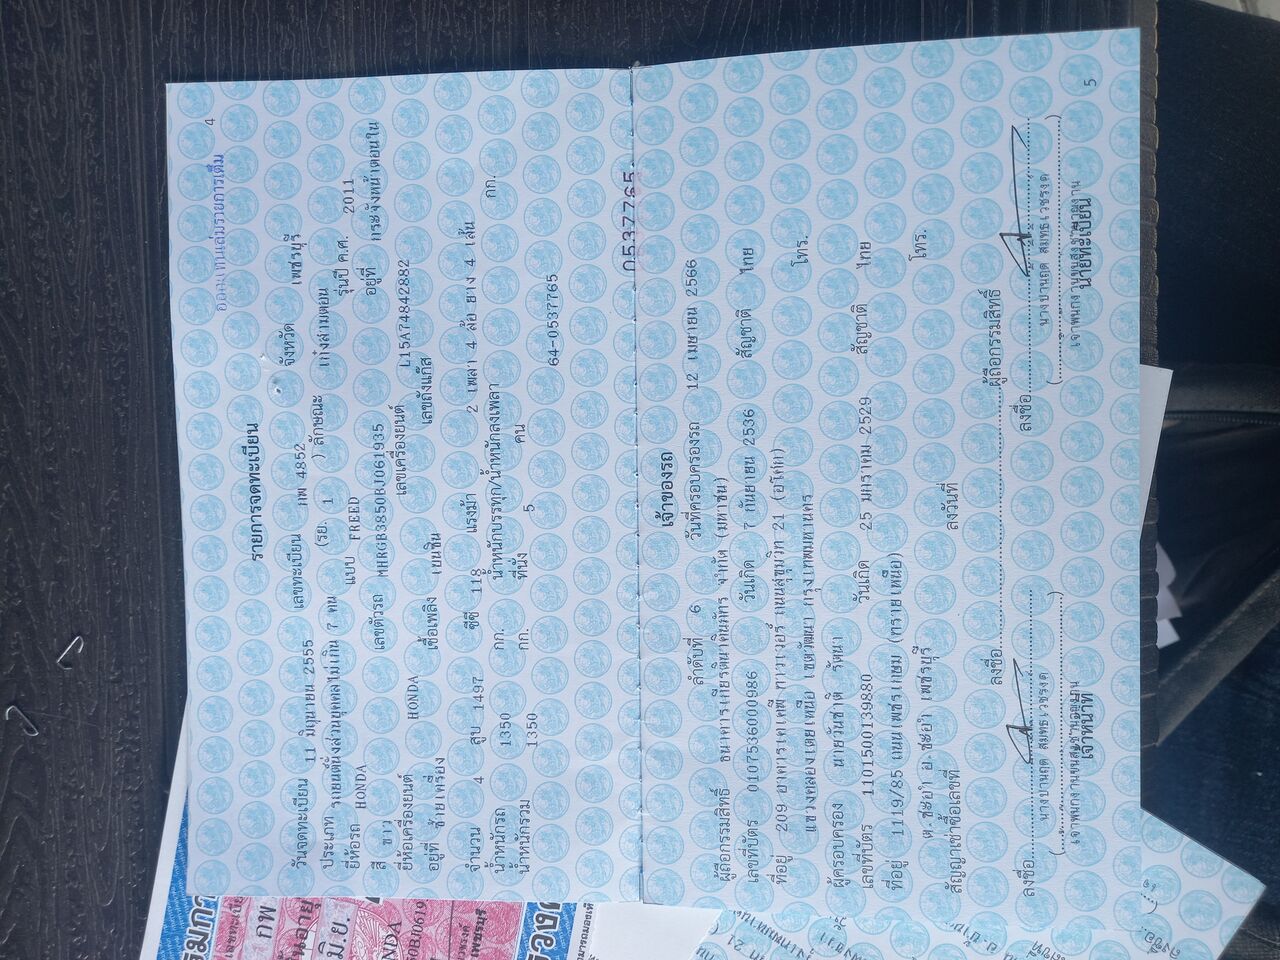 ออกแทนเล่มรายการเต็ม
4
รายการจดทะเบียน
วันจดทะเบียน 11 มิถุนายน 2555 เลขทะเบียน กพ 4852 จังหวัด เพชรบุรี
ประเภท รถยนต์นั่งส่วนบุคคลไม่เกิน 7 คน (รย. 1 ) ลักษณะ เก๋งสามตอน
ยี่ห้อรถ HONDA แบบ FREED รุ่นปี ค.ศ. 2011
สี ขาว เลขตัวรถ MHRGB3850BJ061935 อยู่ที่ กระจังหน้าตอนใน
ยี่ห้อเครื่องยนต์ HONDA เลขเครื่องยนต์ L15A74842882
อยู่ที่ ซ้ายเครื่อง เชื้อเพลิง เบนซิน เลขถังแก๊ส
จำนวน 4 สูบ 1497 ซีซี 118 แรงม้า 2 เพลา 4 ล้อ ยาง 4 เส้น
น้ำหนักรถ 1350 กก. น้ำหนักบรรทุก/น้ำหนักลงเพลา กก.
น้ำหนักรวม 1350 กก. ที่นั่ง 5 คน
64-0537765
0537765
เจ้าของรถ
ลำดับที่ 6 วันที่ครอบครองรถ 12 เมษายน 2566
ผู้ถือกรรมสิทธิ์ ธนาคารเกียรตินาคินภัทร จำกัด (มหาชน)
เลขที่บัตร 0107536000986 วันเกิด 7 กันยายน 2536 สัญชาติ ไทย
ที่อยู่ 209 อาคารเคเคพี ทาวเวอร์ ถนนสุขุมวิท 21 (อโศก) โทร.
แขวงคลองเตยเหนือ เขตวัฒนา กรุงเทพมหานคร
ผู้ครอบครอง นายวันชาติ รัตนา
เลขที่บัตร 1101500139880 วันเกิด 25 มกราคม 2529 สัญชาติ ไทย
ที่อยู่ 1119/85 ถนนเพชรเกษม (ทรายเหนือ) โทร.
ต.ชะอำ อ.ชะอำ เพชรบุรี
สัญญาเช่าซื้อเลขที่ ลงวันที่
ลงชื่อ ผู้ถือกรรมสิทธิ์
ลงชื่อ ลงชื่อ
เจ้าพนักงานขนส่งชำนาญงาน เจ้าพนักงานขนส่งชำนาญงาน
เจ้าหน้าที่ นายทะเบียน
5
กพ
มิ.ย.
HONDA
เพชรบุรี